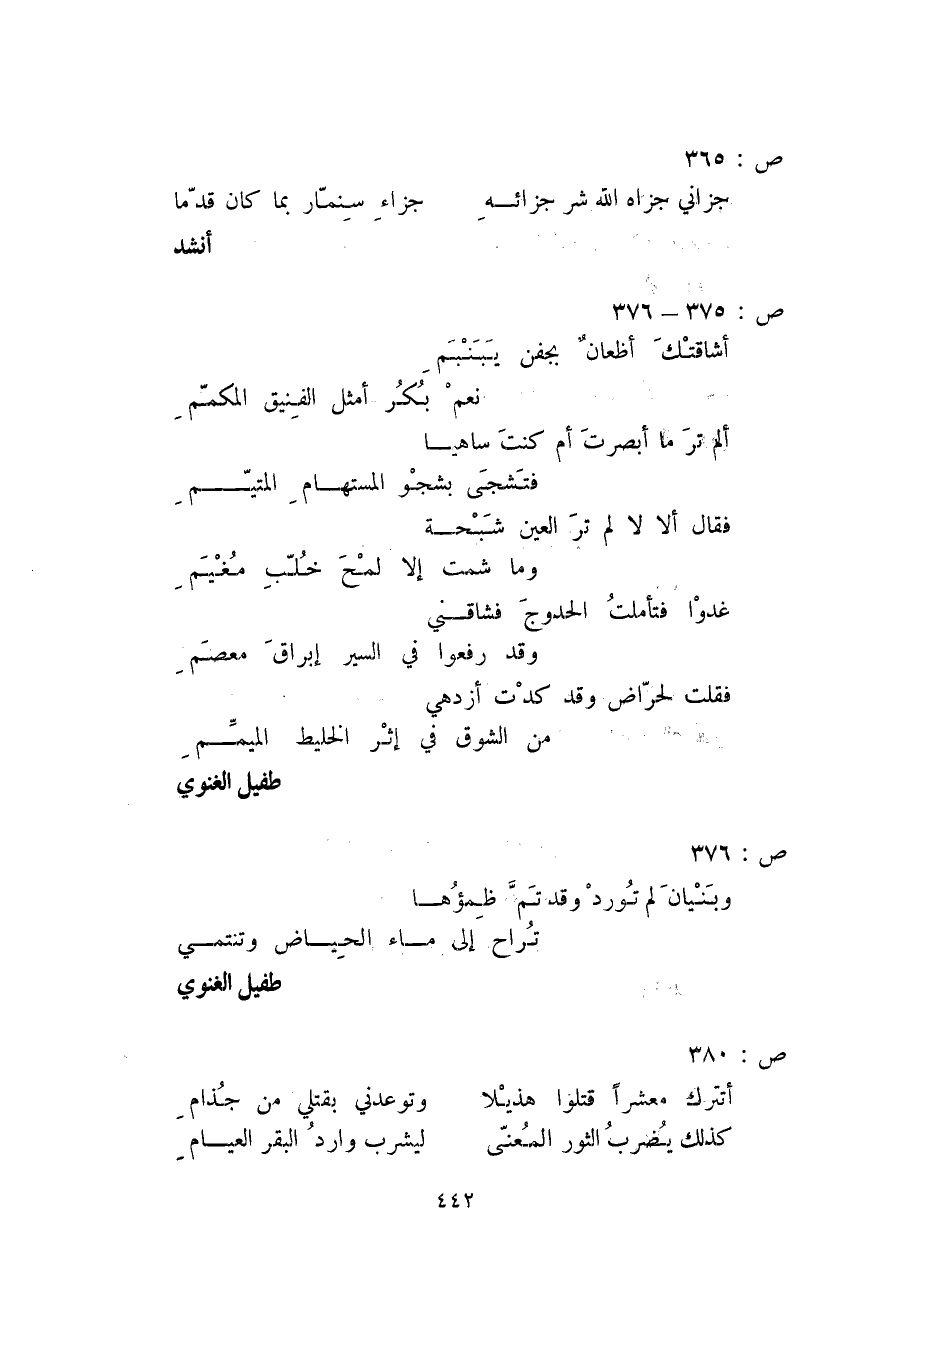 ص : ٣٦٥
جزاني جزاه الله شر جزائـــهِ جزاءِ سِنمّار بما كان قدّما
أنشد
ص : ٣٧٥ – ٣٧٦
أشاقتْكَ أظعانٌ بجفن يَبَنْبَمِ
نعمْ بُكُر أمثل الفنِيق المكمّمِ
ألم ترَ ما أبصرتَ أم كنتَ ساهيـــا
فتَشجَى بشجْو المستهـــام ِ المتيّـــــمِ
فقال ألا لا لم ترَ العين شَبْحـــة
وما شمت إلا لمْحَ خُلّبِ مُغْيَمِ
غدوْا فتأملتُ الحدوجَ فشاقــني
وقد رفعوا في السير إبراقَ معصَمِ
فقلت لحرّاض وقد كدْت أزدهي
من الشوق في إثْر الخليط الميمِّـــمِ
طفيل الغنوي
ص : ٣٧٦
وبَنْيانَ لم تُوردْ وقد تَمَّ ظِمؤُهـــا
تُراح إلى مـــاء الحِيـــاض وتنتمـــي
طفيل الغنوي
ص : ٣٨٠
أتترك معشراً قتلوا هذيْلا وتوعدني بقتلي من جُذامِ
كذلك يُضربُ الثور المُعنّى ليشرب واردُ البقر العيـــامِ
٤٤٢